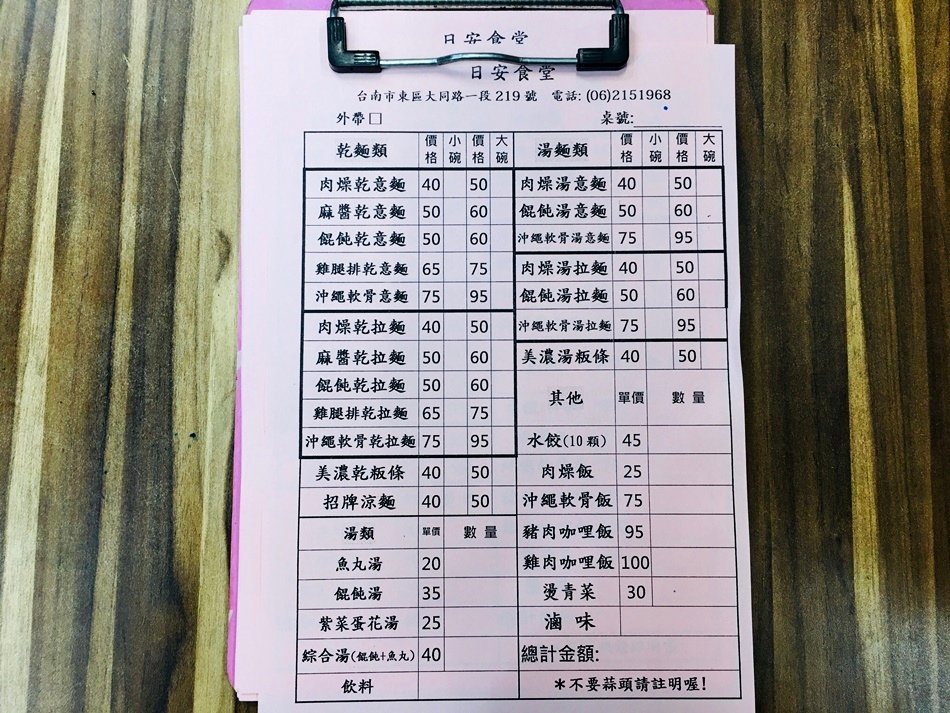 日安食堂
日安食堂
台南市東區大同路一段219號 電話:(06)2151968
外帶□ 桌號:
乾麵類 價格 小碗 價格 大碗
肉燥乾意麵 40 50
麻醬乾意麵 50 60
餛飩乾意麵 50 60
雞腿排乾意麵 65 75
沖繩軟骨意麵 75 95
肉燥乾拉麵 40 50
麻醬乾拉麵 50 60
餛飩乾拉麵 50 60
雞腿排乾拉麵 65 75
沖繩軟骨乾拉麵 75 95
美濃乾粄條 40 50
招牌涼麵 40 50
湯類 單價 數量
魚丸湯 20
餛飩湯 35
紫菜蛋花湯 25
綜合湯(餛飩+魚丸) 40
飲料
湯麵類 價格 小碗 價格 大碗
肉燥湯意麵 40 50
餛飩湯意麵 50 60
沖繩軟骨湯意麵 75 95
肉燥湯拉麵 40 50
餛飩湯拉麵 50 60
沖繩軟骨湯拉麵 75 95
美濃湯粄條 40 50
其他 單價 數量
水餃(10顆) 45
肉燥飯 25
沖繩軟骨飯 75
豬肉咖哩飯 95
雞肉咖哩飯 100
燙青菜 30
滷味
總計金額:
*不要蒜頭請註明喔!